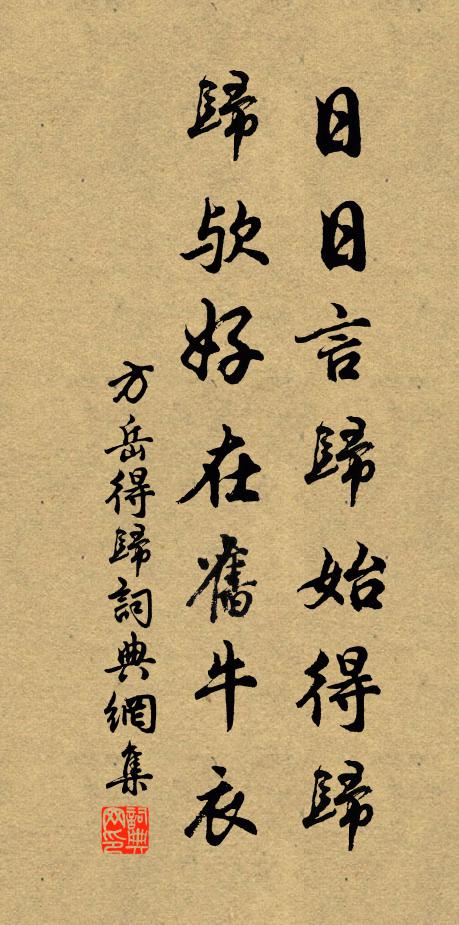 日日言歸始得歸
歸歟好在舊牛衣
方岳得歸詞典網集
詞典網印